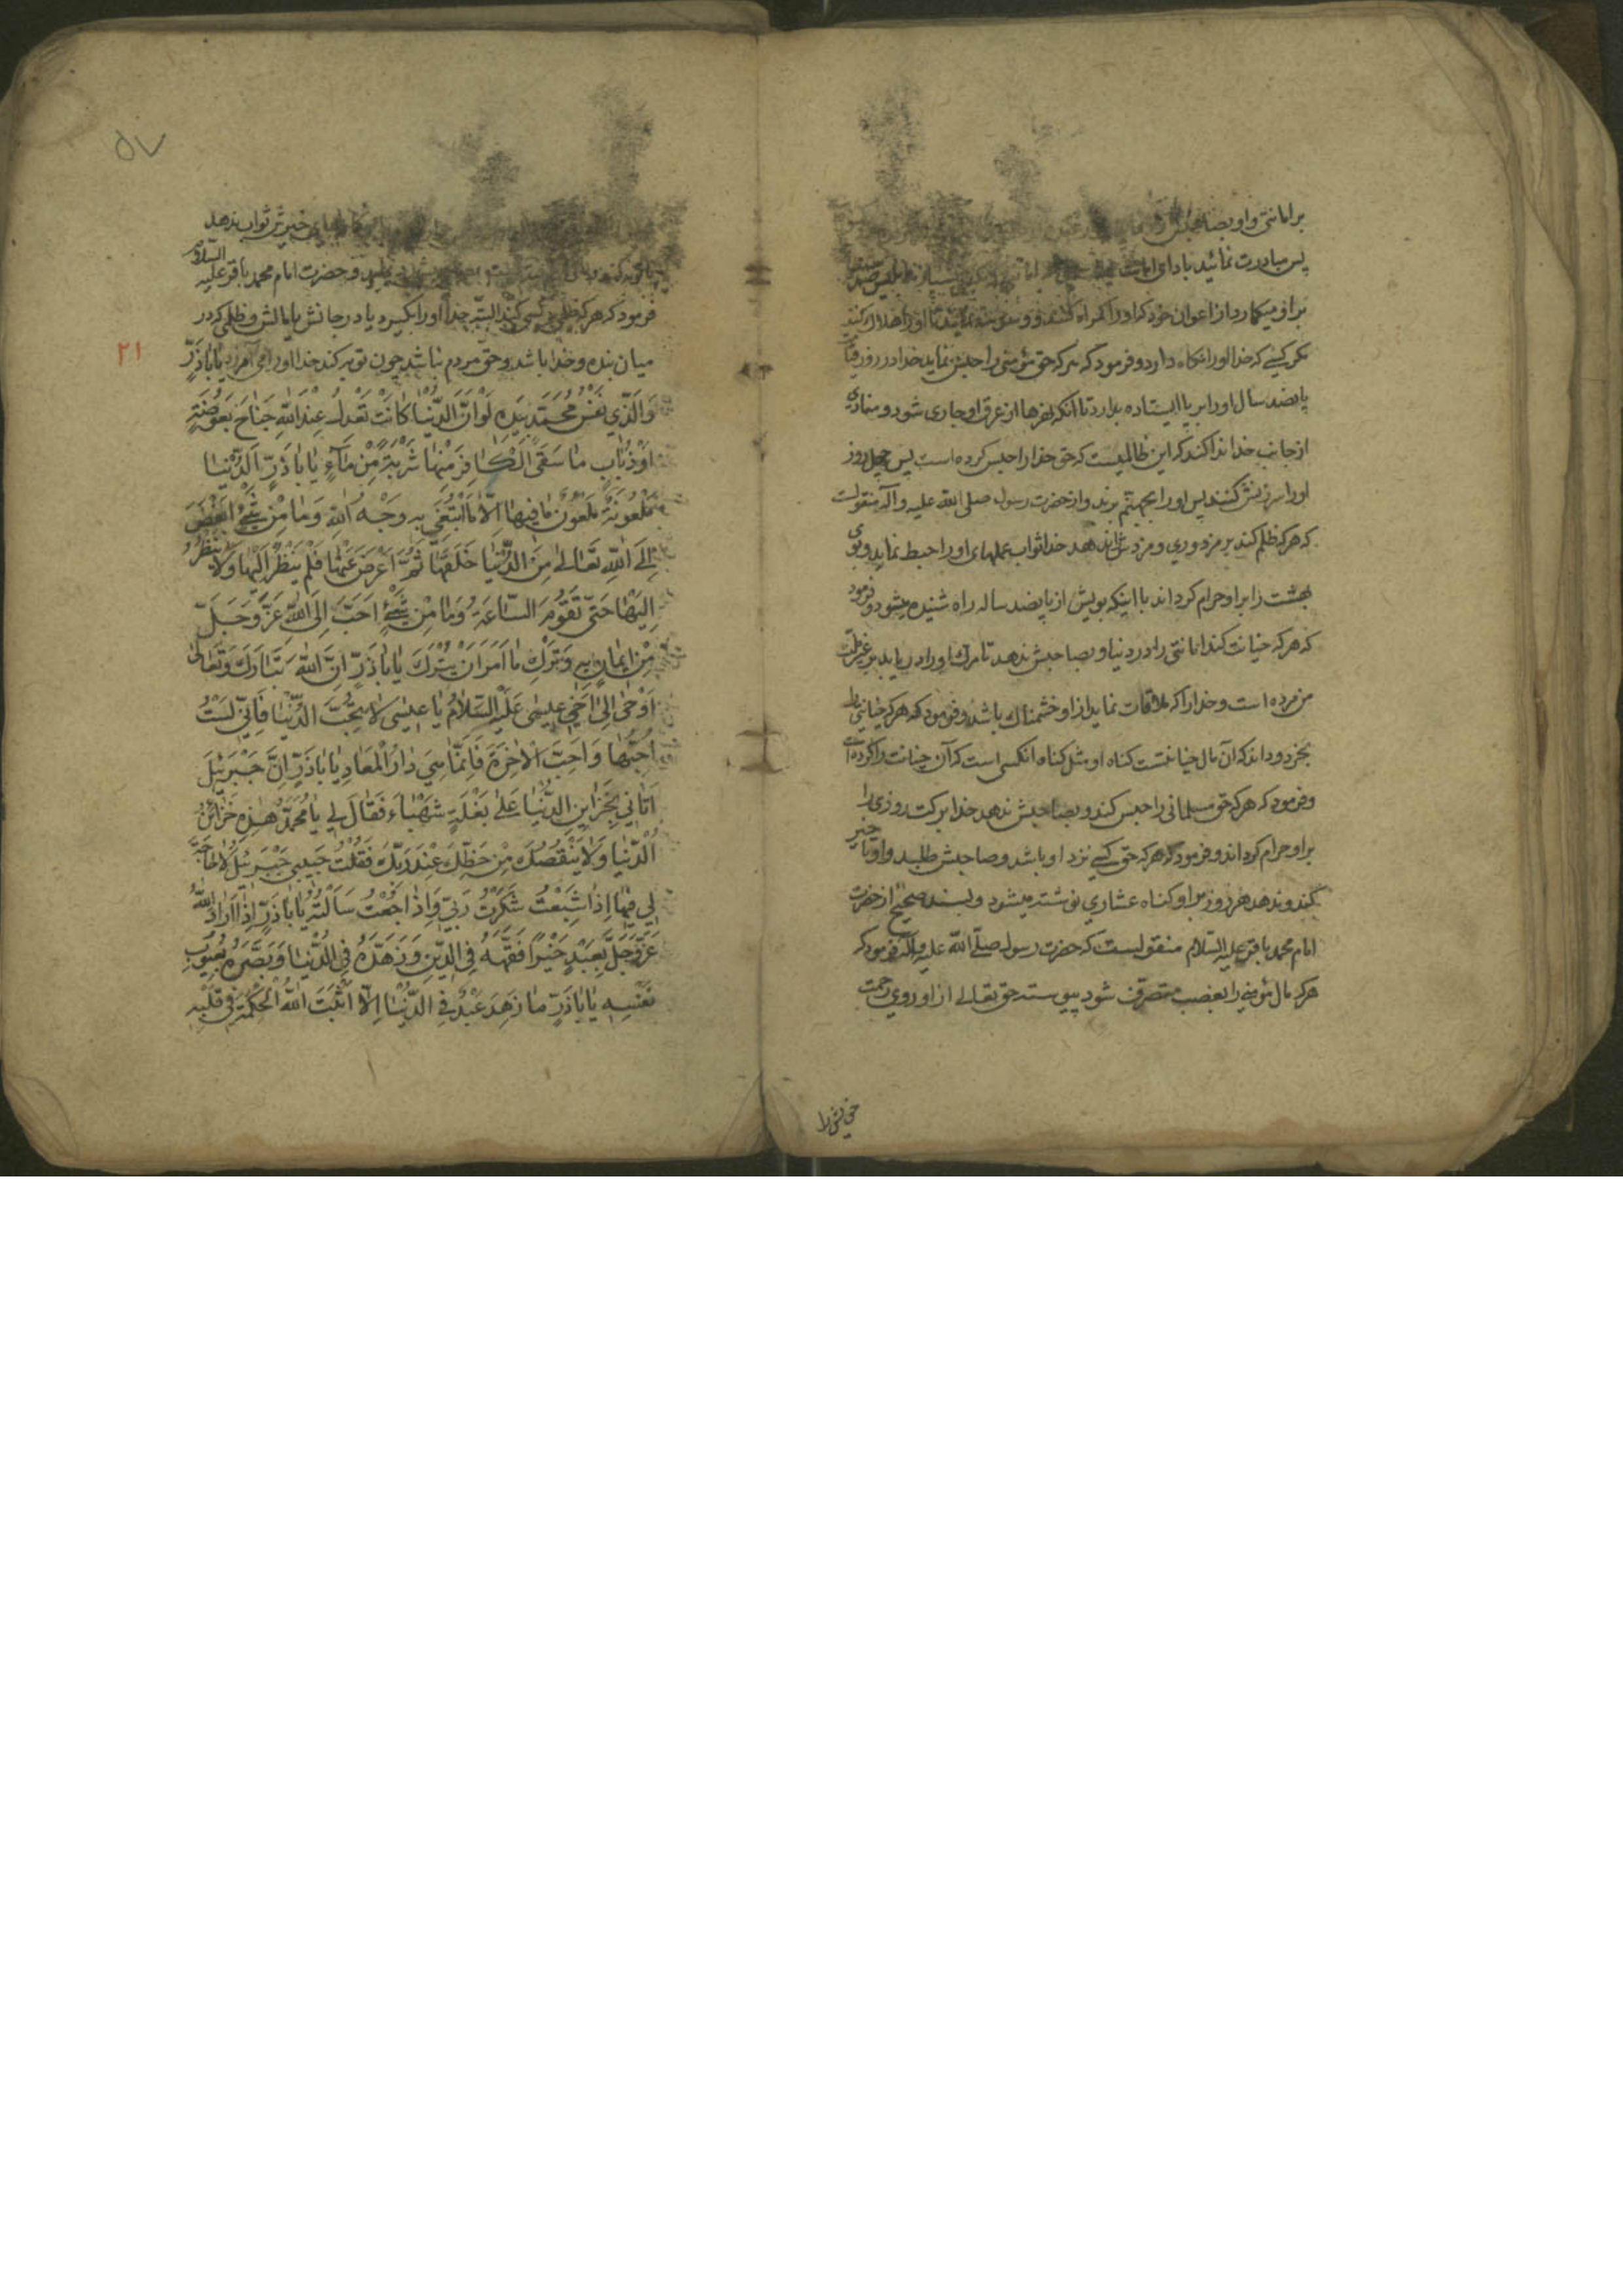 بر امانتی و او بصاحبش
پس مبادرت نمائید بادای امانت
بر او میکمارد از اعوان خود که او را کمراه کنند و وسوسه نمایند تا او را هلاک کنند
مکر کسی که خدا او را نکاه دارد و فرمود که هر که حق مؤمنی را حبس نماید خدا در روز قیامت
پانصد سال او را بر پا ایستاده بدارد تا آنکه نهرها از عرق او جاری شود و منادی
از جانب خدا ندا کند که این ظالمیست که حق خدا را حبس کرده است پس چهل روز
او را سرزنش کنند پس او را بجهنم برند و از حضرت رسول صلی الله علیه و آله منقولست
که هر که ظلم کند بر مزدوری و مزدش را ندهد خدا ثواب عملهای او را حبط نماید و بوی
بهشت را بر او حرام کرداند با اینکه بویش از پانصد ساله راه شنیده میشود و فرمود
که هر که خیانت کند امانتی را در دنیا و بصاحبش ندهد تا مرک او را دریابد بر غیر ملت
من مرده است و خدا را که ملاقات نماید از او خشمناک باشد و فرمود که هر که خیانتی را
بخرد و داند که آن مال خیانتست کناه او مثل کناه آنکسی است که آن خیانت را کرده است
و فرمود که هر که حق مسلمانی را حبس کند و بصاحبش ندهد خدا برکت روزی را
بر او حرام کرداند و فرمود که هر که حق کسی نزد او باشد و صاحبش طلبد و او تأخیر
کند و ندهد هر روز بر او کناه عشاری نوشته میشود و بسند صحیح از حضرت
امام محمد باقر علیه السلام منقولست که حضرت رسول صلی الله علیه و آله فرمود که
هر که مال مؤمنی را بغصب متصرف شود پیوسته حق تعالی از او روی رحمت
۵۷
خیر ثواب ندهد
و حضرت امام محمد باقر علیه السلام
فرمود که هر که ظلم بر کسی کند البته خدا او را بکیرد یا در جانش یا مالش و ظلمی که در
۲۱
میان بنده و خدا باشد و حق مردم نباشد چون توبه کند خدا او را می آمرزد یَا بَا ذَرٍّ
وَالَّذِي نَفْسُ مُحَمَّدٍ بِيَدِهِ لَوْ اَنَّ الدُّنْيَا كَانَتْ تَعْدِلُ عِنْدَ اللهِ جَنَاحَ بَعُوضَةٍ
اَوْ ذُبَابٍ مَا سَقَى الْكَافِرَ مِنْهَا شَرْبَةً مِنْ مَاءٍ يَا بَا ذَرٍّ اَلدُّنْيَا
مَلْعُونَةٌ مَلْعُونٌ مَا فِيهَا اِلَّا مَا ابْتُغِيَ بِهِ وَجْهُ اللهِ وَمَا مِنْ شَيْءٍ اَبْغَضَ
اِلَى اللهِ تَعَالَى مِنَ الدُّنْيَا خَلَقَهَا ثُمَّ اَعْرَضَ عَنْهَا فَلَمْ يَنْظُرْ اِلَيْهَا وَلَا يَنْظُرُ
اِلَيْهَا حَتَّى تَقُومَ السَّاعَةُ وَمَا مِنْ شَيْءٍ اَحَبَّ اِلَى اللهِ عَزَّ وَجَلَّ
مِنْ اِيمَانٍ بِهِ وَتَرْكِ مَا اَمَرَ اَنْ يُتْرَكَ يَا بَا ذَرٍّ اِنَّ اللهَ تَبَارَكَ وَتَعَالَى
اَوْحَى اِلَى اَخِي عِيسَى عَلَيْهِ السَّلَامُ يَا عِيسَى لَا تُحِبَّ الدُّنْيَا فَاِنِّي لَسْتُ
اُحِبُّهَا وَاَحِبَّ الْاٰخِرَةَ فَاِنَّمَا هِيَ دَارُ الْمَعَادِ يَا بَا ذَرٍّ اِنَّ جَبْرَئِيلَ
اَتَانِي بِخَزَايِنِ الدُّنْيَا عَلَى بَغْلَةٍ شَهْبَاءَ فَقَالَ لِي يَا مُحَمَّدُ هَذِهِ خَزَائِنُ
الدُّنْيَا وَلَا يَنْقُصُكَ مِنْ حَظِّكَ عِنْدَ رَبِّكَ فَقُلْتُ حَبِيبِي جَبْرَئِيلُ لَا حَاجَةَ
لِي فِيهَا اِذَا شَبِعْتُ شَكَرْتُ رَبِّي وَاِذَا جُعْتُ سَاَلْتُهُ يَا بَا ذَرٍّ اِذَا اَرَادَ اللهُ
عَزَّ وَجَلَّ بِعَبْدٍ خَيْرًا فَقَّهَهُ فِي الدِّينِ وَزَهَّدَهُ فِي الدُّنْيَا وَبَصَّرَهُ بِعُيُوبِ
نَفْسِهِ يَا بَا ذَرٍّ مَا زَهِدَ عَبْدٌ فِي الدُّنْيَا اِلَّا اَثْبَتَ اللهُ الْحِكْمَةَ فِي قَلْبِهِ